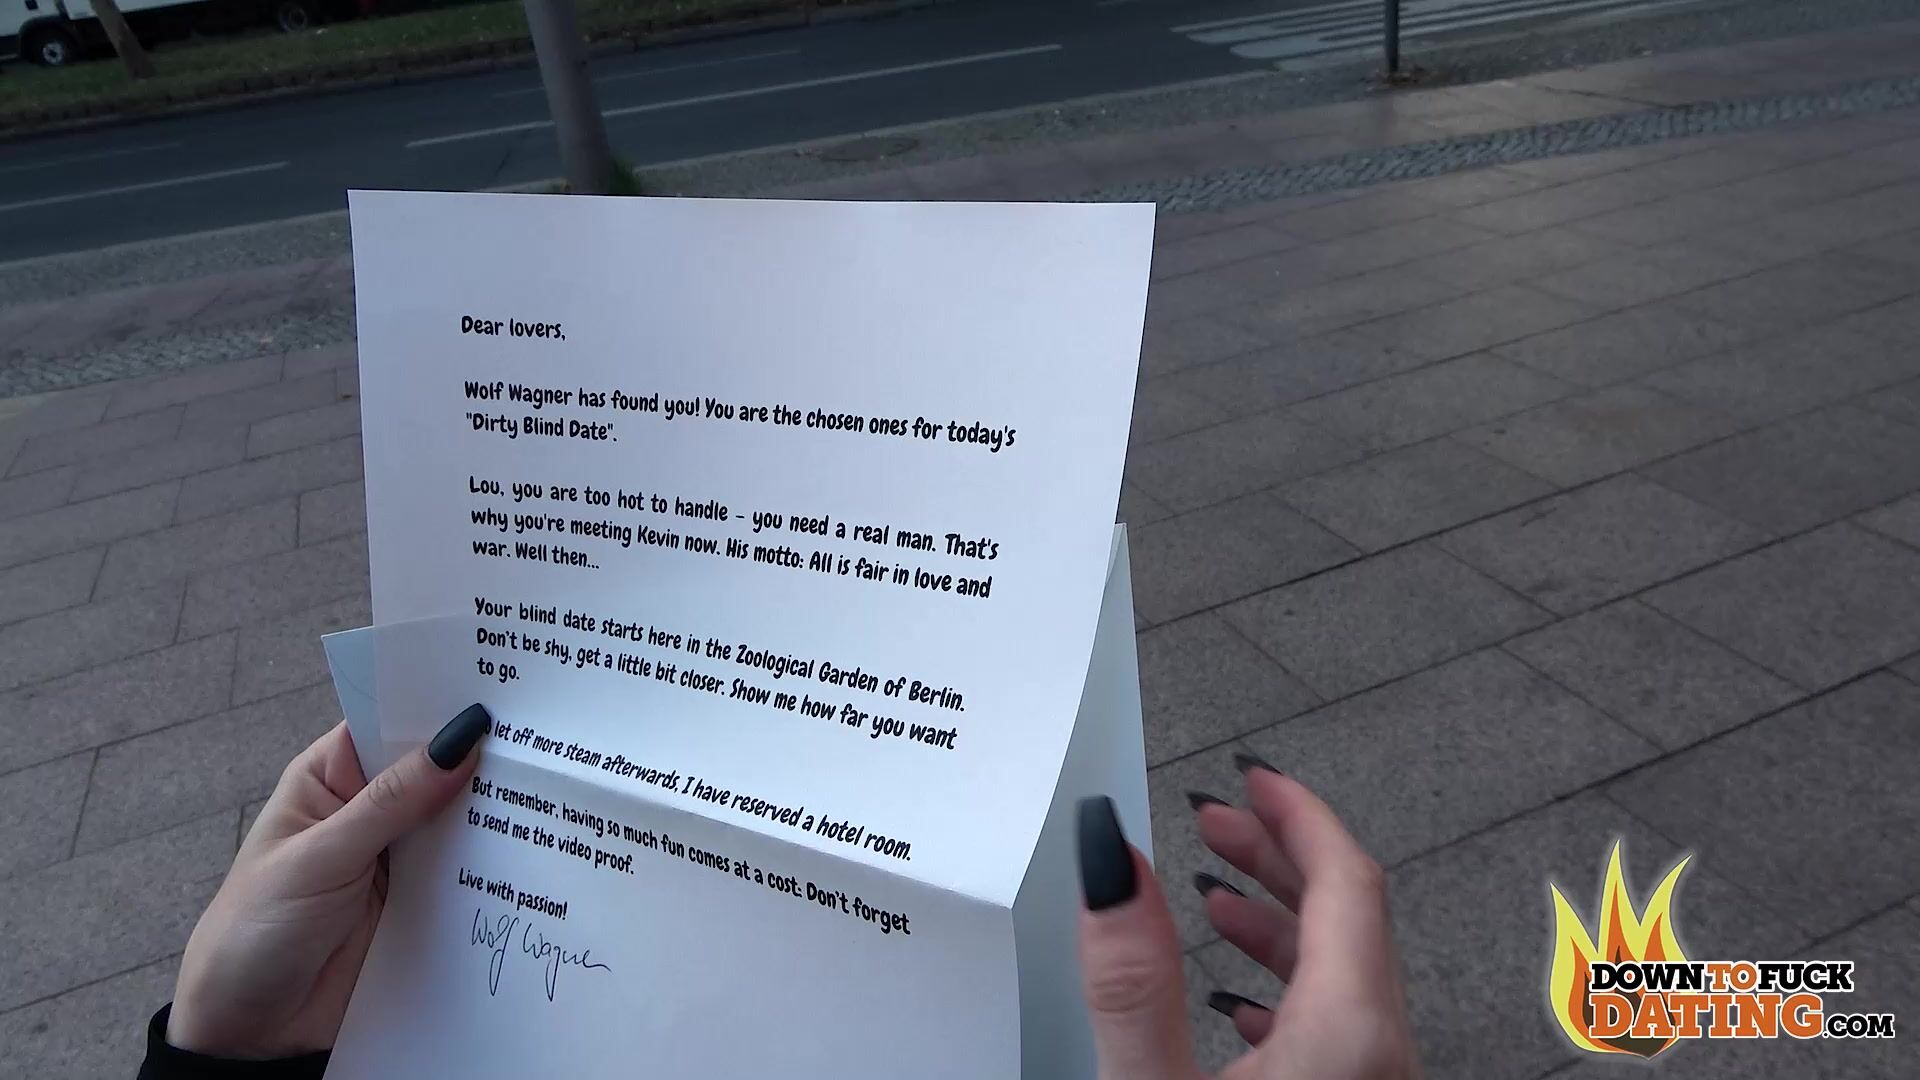 Dear lovers,
Wolf Wagner has found you! You are the chosen ones for today's
"Dirty Blind Date".
Lou, you are too hot to handle – you need a real man. That's
why you're meeting Kevin now. His motto: All is fair in love and
war. Well then...
Your blind date starts here in the Zoological Garden of Berlin.
Don't be shy, get a little bit closer. Show me how far you want
to go.
let off more steam afterwards, I have reserved a hotel room.
But remember, having so much fun comes at a cost: Don't forget
to send me the video proof.
Live with passion!
Wolf Wagner
DOWNTOFUCK
DATING.COM